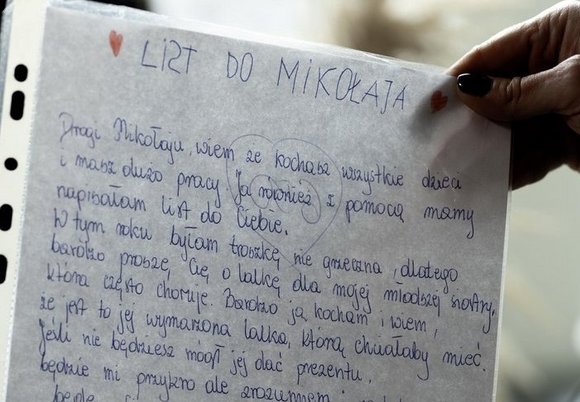 LIST DO MIKOŁAJA
Drogi Mikołaju, wiem że kochasz wszystkie dzieci
i masz dużo pracy Ja również z pomocą mamy
napisałam list do Ciebie.
W tym roku byłam troszkę nie grzeczna, dlatego
bardzo proszę, Cię o lalkę dla mojej młodszej siostry,
która często choruje. Bardzo ją kocham i wiem,
że jest to jej wymarzona lalka, którą chciałaby mieć.
Jeśli nie będziesz mógł jej dać prezentu,
będzie mi przykro ale zrozumiem i
będę